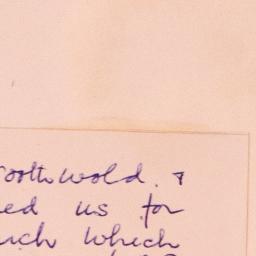 oothwold. &
ed us for
uch which